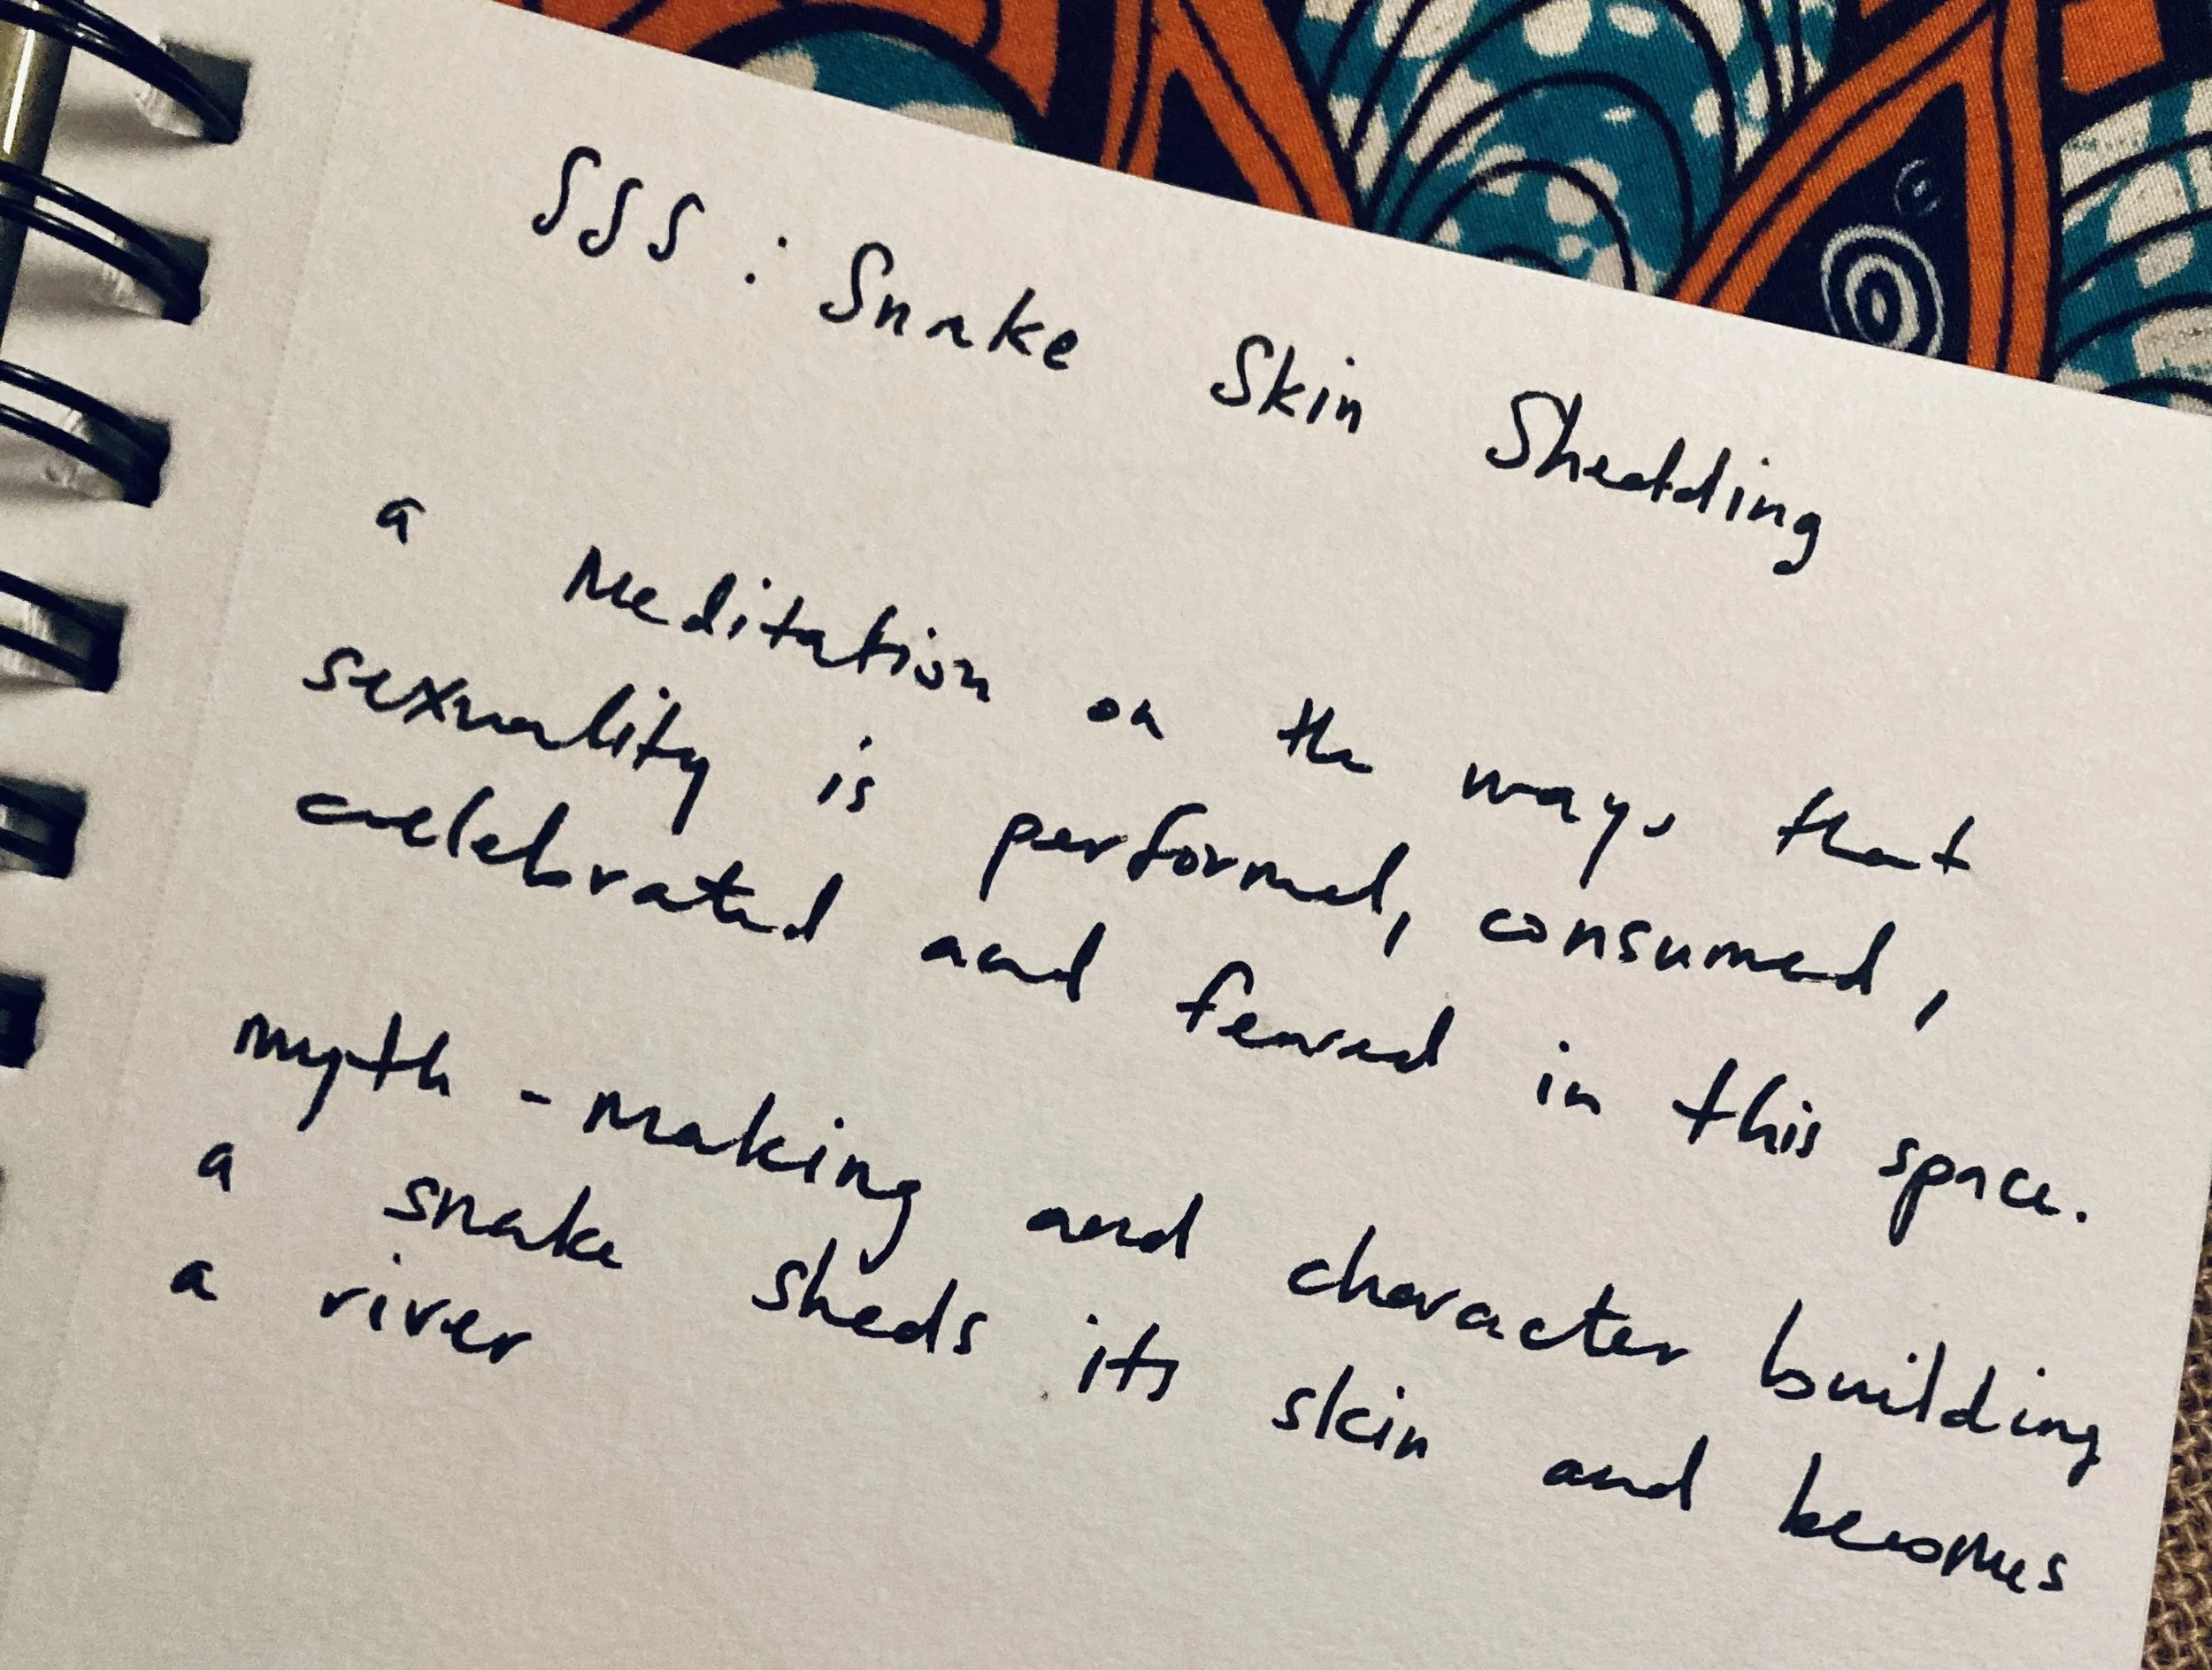 SSS : Snake Skin Shedding
a Meditation on the ways that
sexuality is performed, consumed,
celebrated and feared in this space.
myth - making and character building
a snake sheds its skin and becomes
a river